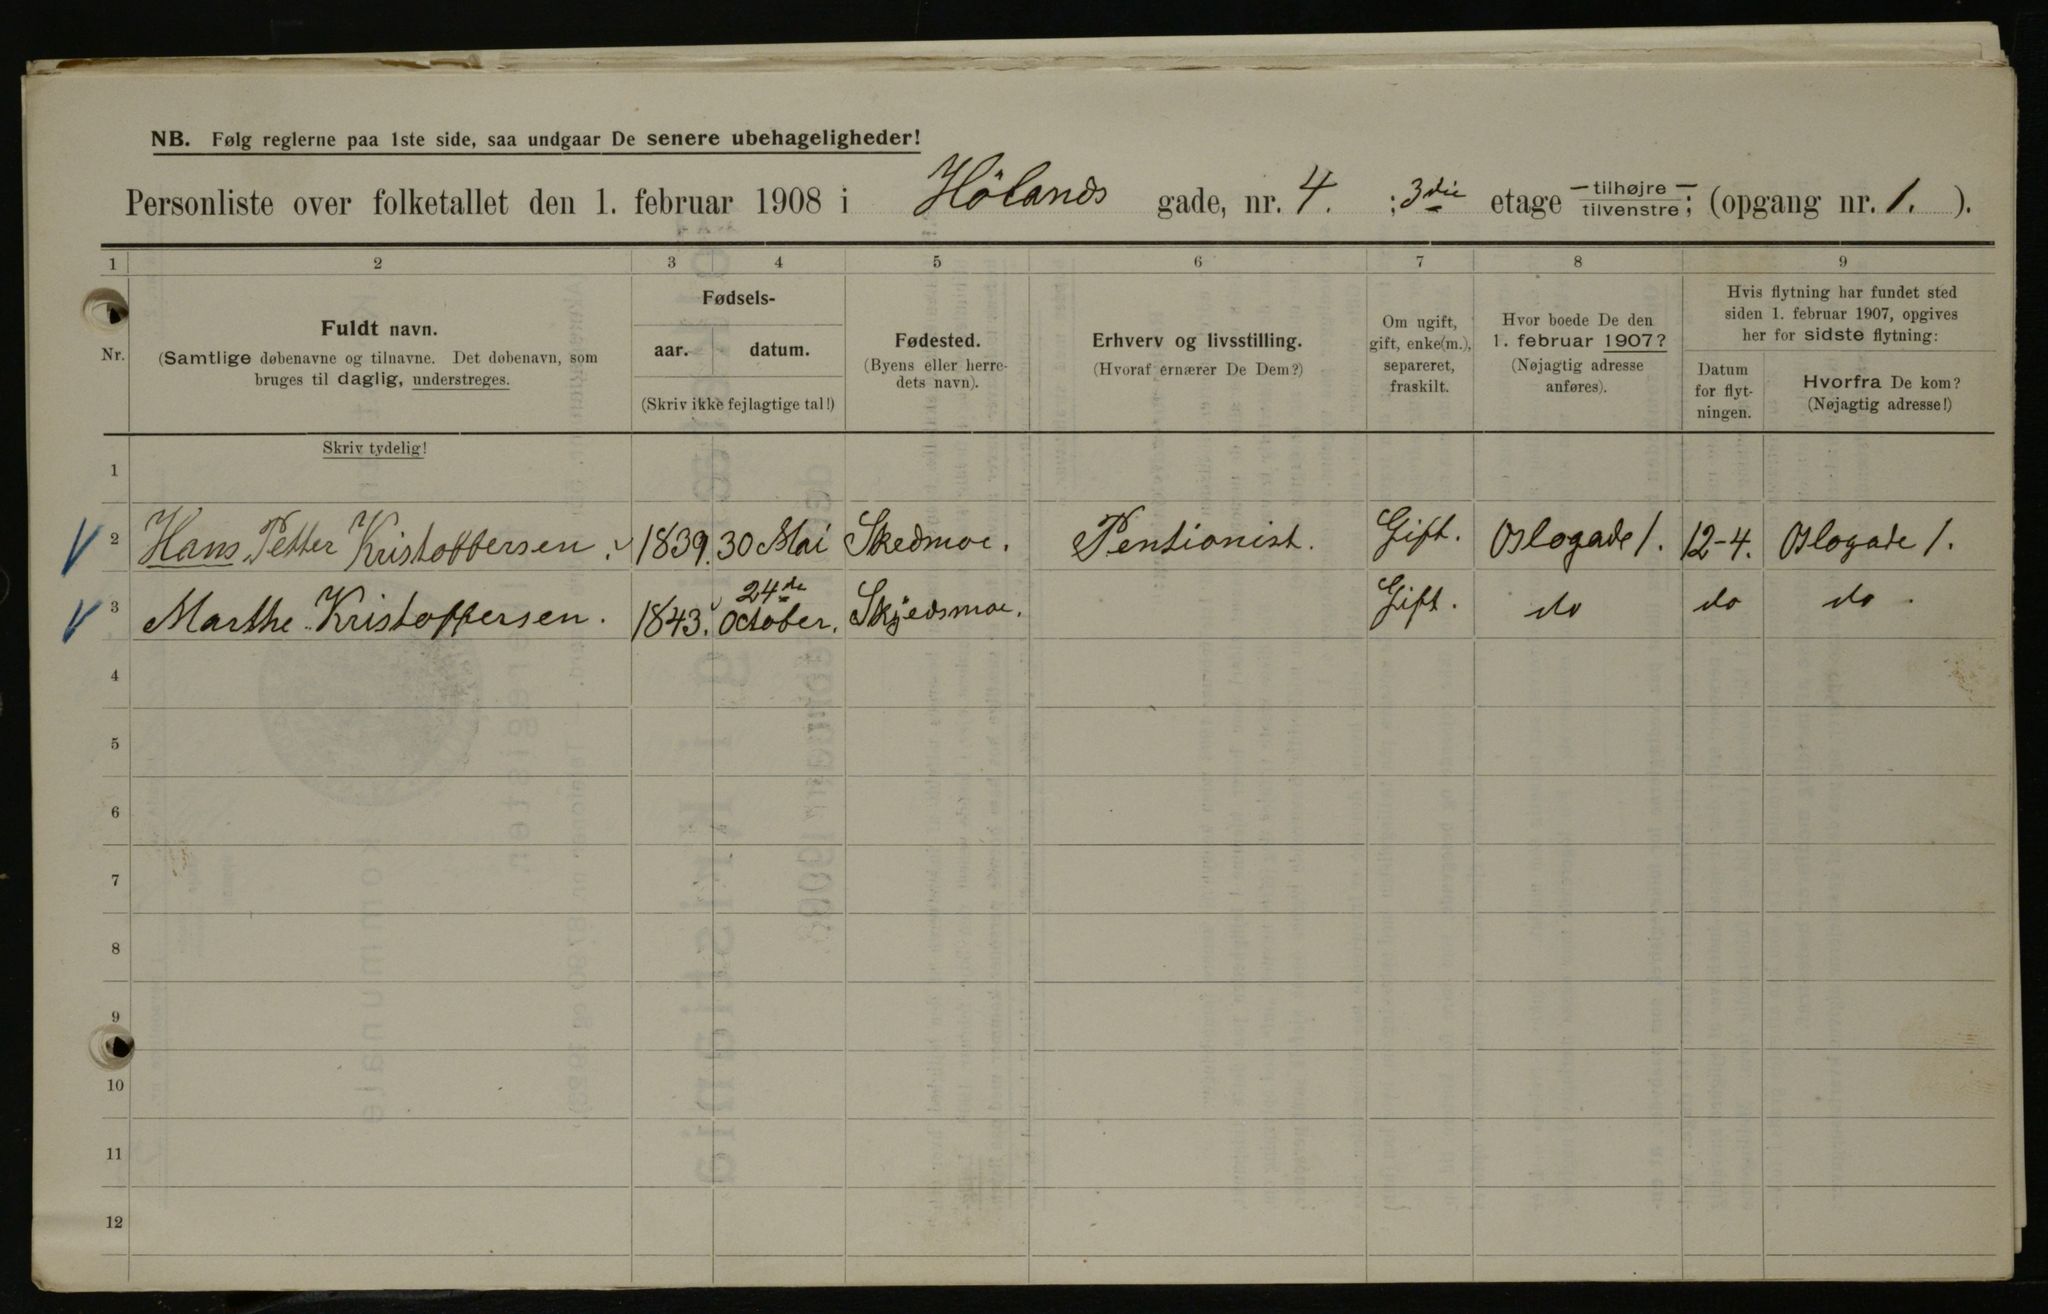 NB. Følg reglerne paa 1ste side, saa undgaar De senere ubehageligheder!
Personliste over folketallet den 1. februar 1908 i Hölands gade, nr. 4. ; 3die etage tilhøjre tilvenstre; (opgang nr. 1. ).
1 2 3 4 5 6 7 8 9
Nr.
Fuldt navn.
(Samtlige døbenavne og tilnavne. Det døbenavn, som
bruges til daglig, understreges.
Skriv tydelig!
Fødsels-
aar. datum.
(Skriv ikke fejlagtige tal!)
Fødested.
(Byens eller herre-
dets navn).
Erhverv og livsstilling.
(Hvoraf ernærer De Dem?)
Om ugift,
gift, enke(m.),
separeret,
fraskilt.
Hvor boede De den
1. februar 1907?
(Nøjagtig adresse
anføres).
Hvis flytning har fundet sted
siden 1. februar 1907, opgives
her for sidste flytning:
Datum
for flyt-
ningen.
Hvorfra De kom?
(Nøjagtig adresse!)
1
2 Hans Petter Kristoffersen. 1839. 30 Mai Skedmoe. Pentionist. Gift. Oslogade 1. 12-4. Oslogade 1.
3 Marthe Kristoffersen. 1843. 24de October. Skjedsmoe. Gift. do do do.
4
5
6
7
8
9
10
11
12